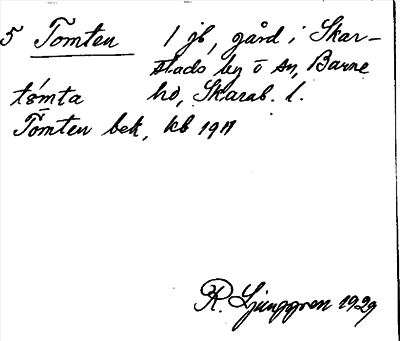 5 Tomten 1 jb, gård i Skar-
stads by o sn, Barne
tómta hd, Skarab. l.
Tomten bek, kb 1911
K. Ljunggren 1929